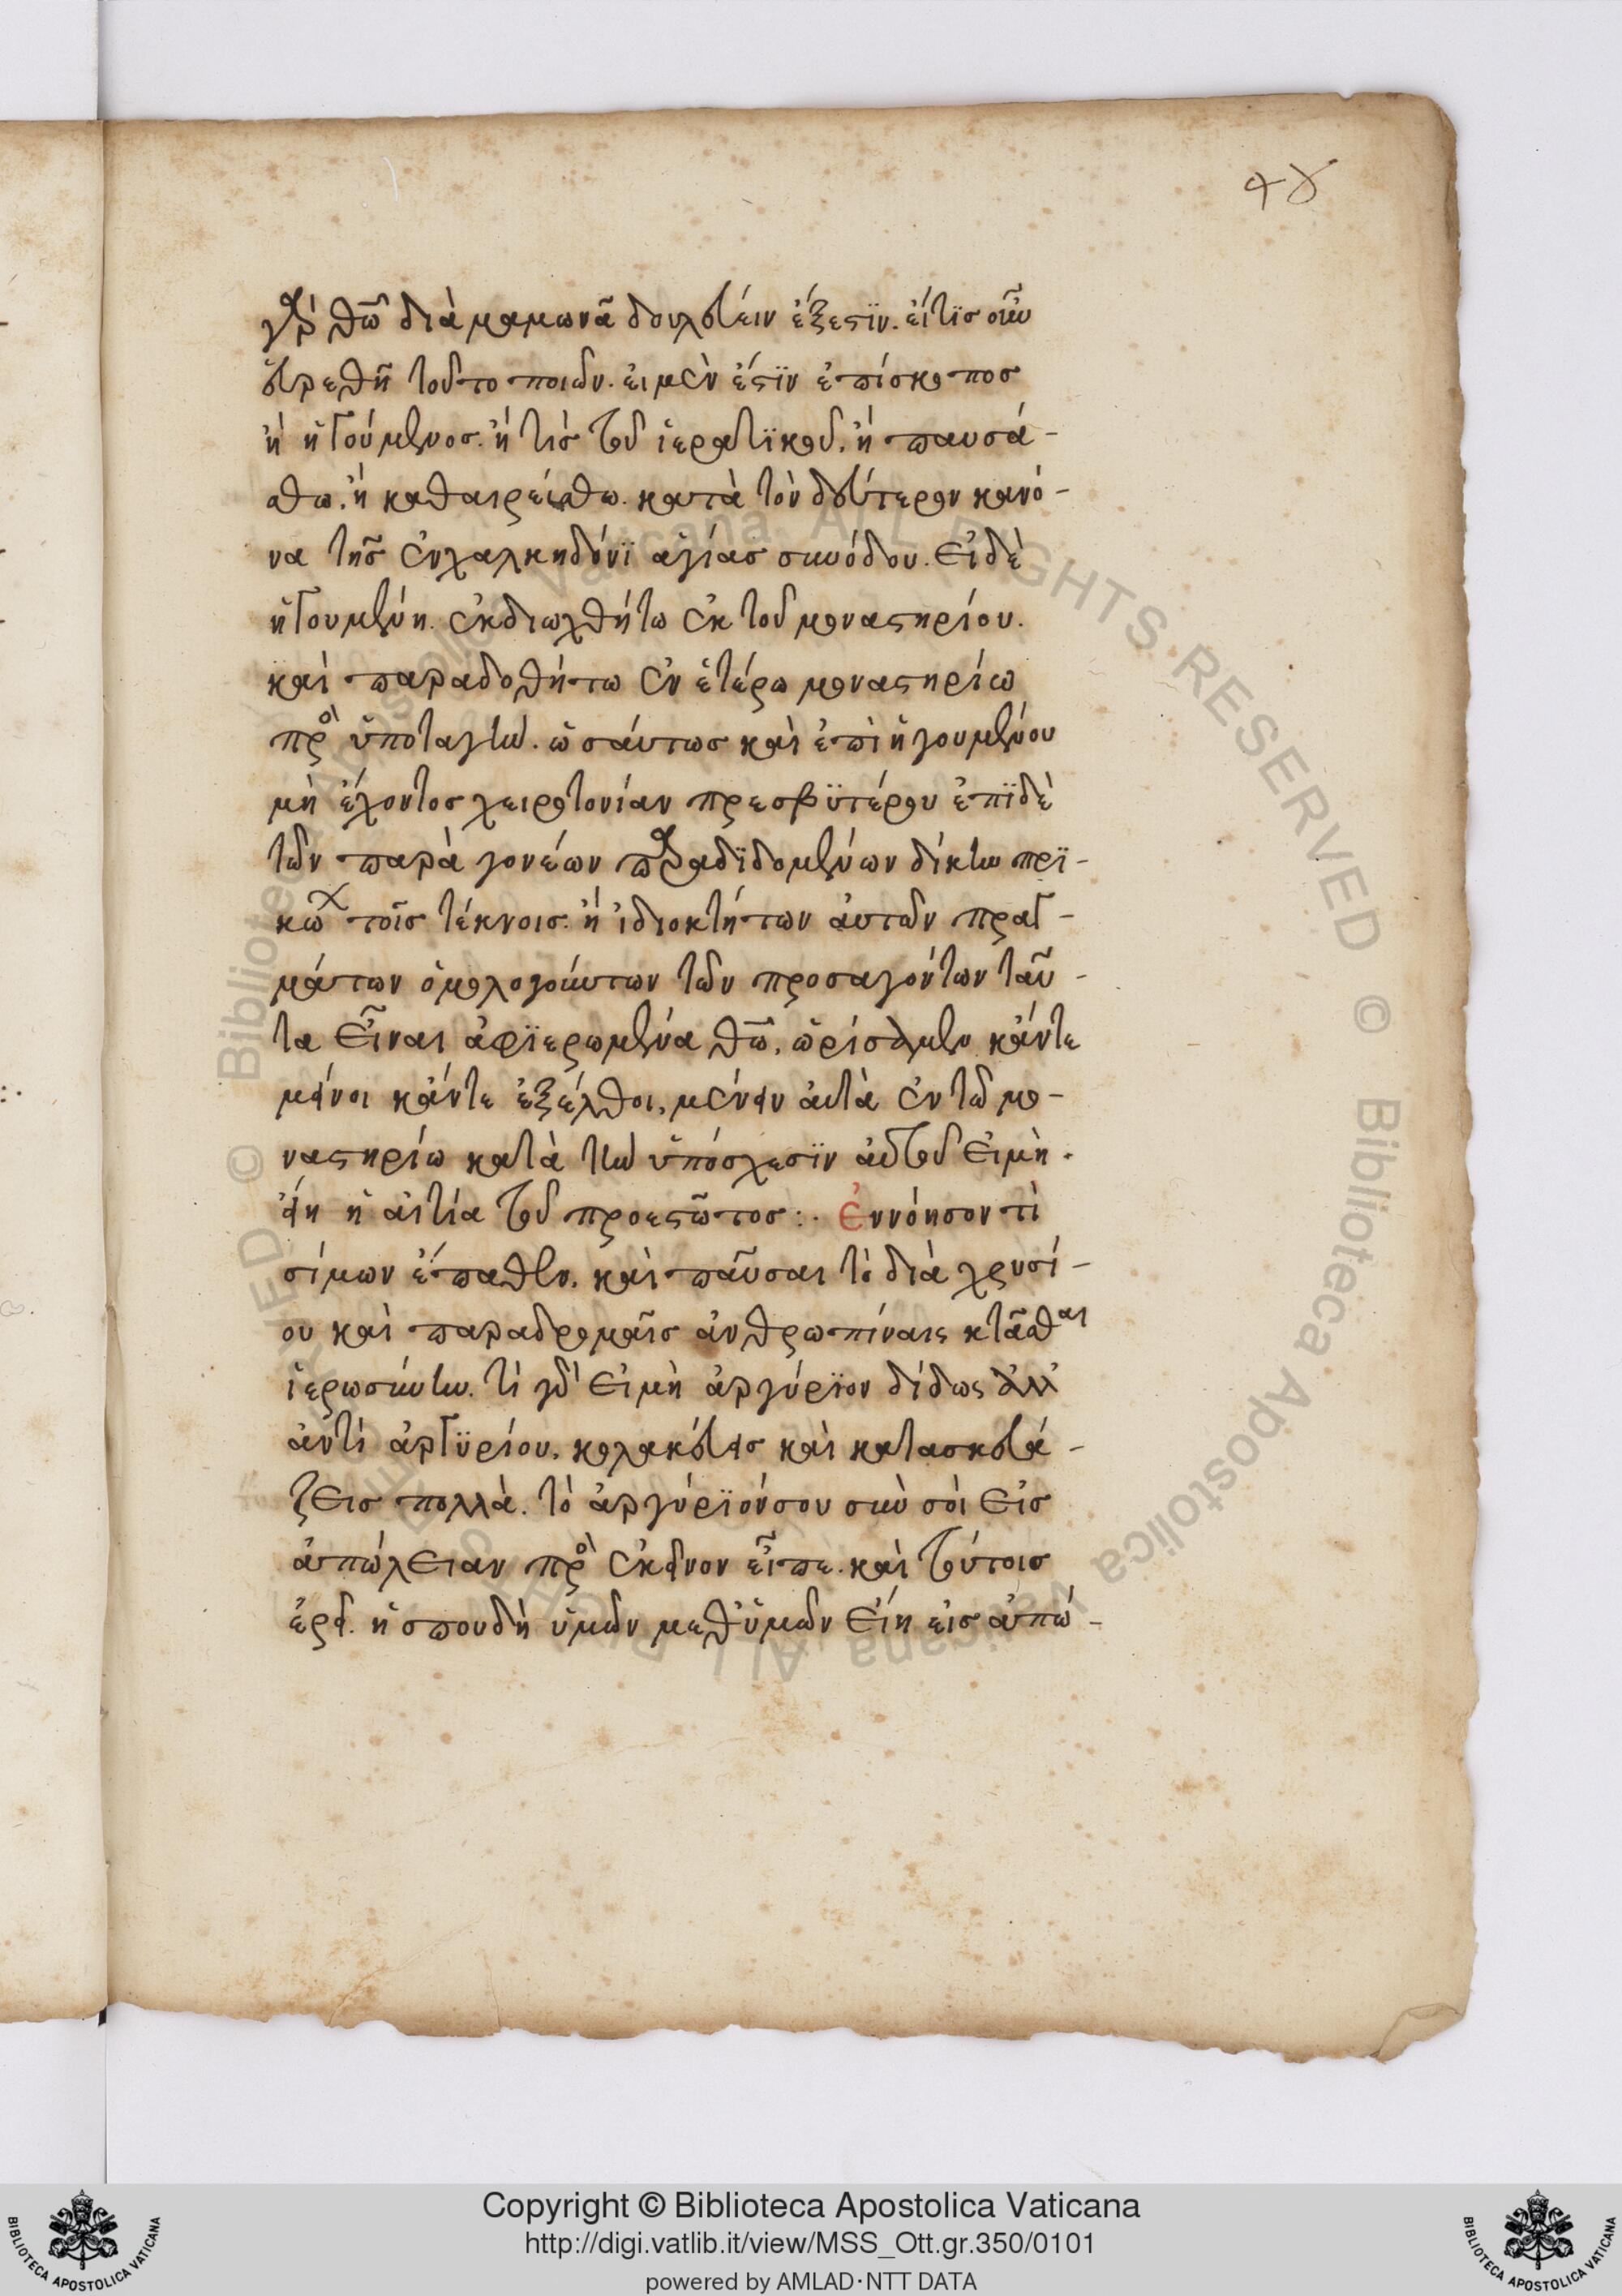 48
γὰρ θῶ διὰ μαμωνᾶ δουλεύειν ἔξεστϊν. εἴτϊσ οὖν
εὑρεθῆ τοῦτο ποιῶν. ἐι μὲν ἐστϊν ἐπίσκοπος
ἢ ἡγούμενος. ἢ τὶσ τοῦ ἱερατϊκοῦ. ἢ παυσά-
σθω. ἢ καθαιρείσθω. κατὰ τὸν δεύτερον κανό-
να τῆσ ἐν χαλκηδόνϊ ἁγίας συνόδου. εἰδὲ
ἡγουμένη. ἐκδιωχθήτω ἐκ τοῦ μοναστηρίου.
καὶ παραδοθήτω ἐν ἑτέρω μοναστηρίω
πρὸ ὑποταγὴν. ὡσάυτως καὶ ἐπὶ ἡγουμένου
μὴ ἔχοντος χειροτονίαν πρεσβϋτέρου ἐπϊδὲ
τῶν παρὰ γονέων παραδϊδομένων δίκην πρϊ-
κώ χ τοῖς τέκνοις. ἢ ἰδιοκτήτων ἀυτῶν πραγ-
μάτων ὁμολογούντων τῶν προσαγόντων ταῦ-
τα εἶναι ἀφϊερωμένα θῶ. ὡρίσαμεν κάντε
μένοι κάντε ἐξέλθοι, μένειν ἀυτὰ ἐν τῶ μο-
ναστηρίω κατὰ τὴν ὑπόσχεσϊν ἀυτοῦ εἰμὴ.
εἴη ἡ ἀιτία τοῦ προεστῶτος:. ἐννόησον τὶ
σίμων ἔπαθεν. καὶ παῦσαι τὸ διὰ χρυσί-
ου καὶ παραδρομαῖς ἀνθρωπίναις κτᾶσθαι
ἱερωσύνην. τί γὰρ εἰμὴ ἀργύρϊον δίδως ἀλλ
ἀντὶ ἀργϋρίου, κολακεύεις καὶ κατασκευά-
ζεις πολλὰ. τὸ ἀργύρϊόνσου σὺν σοὶ εἰς
ἀπώλειαν πρὸ ἐκεῖνον εἶπε. καὶ τούτοις
ἐρεῖ. ἡ σπουδὴ ὑμῶν μεθ ὑμῶν εἴη εἰς ἀπώ-
Copyright © Biblioteca Apostolica Vaticana
http://digi.vatlib.it/view/MSS_Ott.gr.350/0101
powered by AMLAD·NTT DATA
BIBLIOTECA APOSTOLICA VATICANA
BIBLIOTECA APOSTOLICA VATICANA